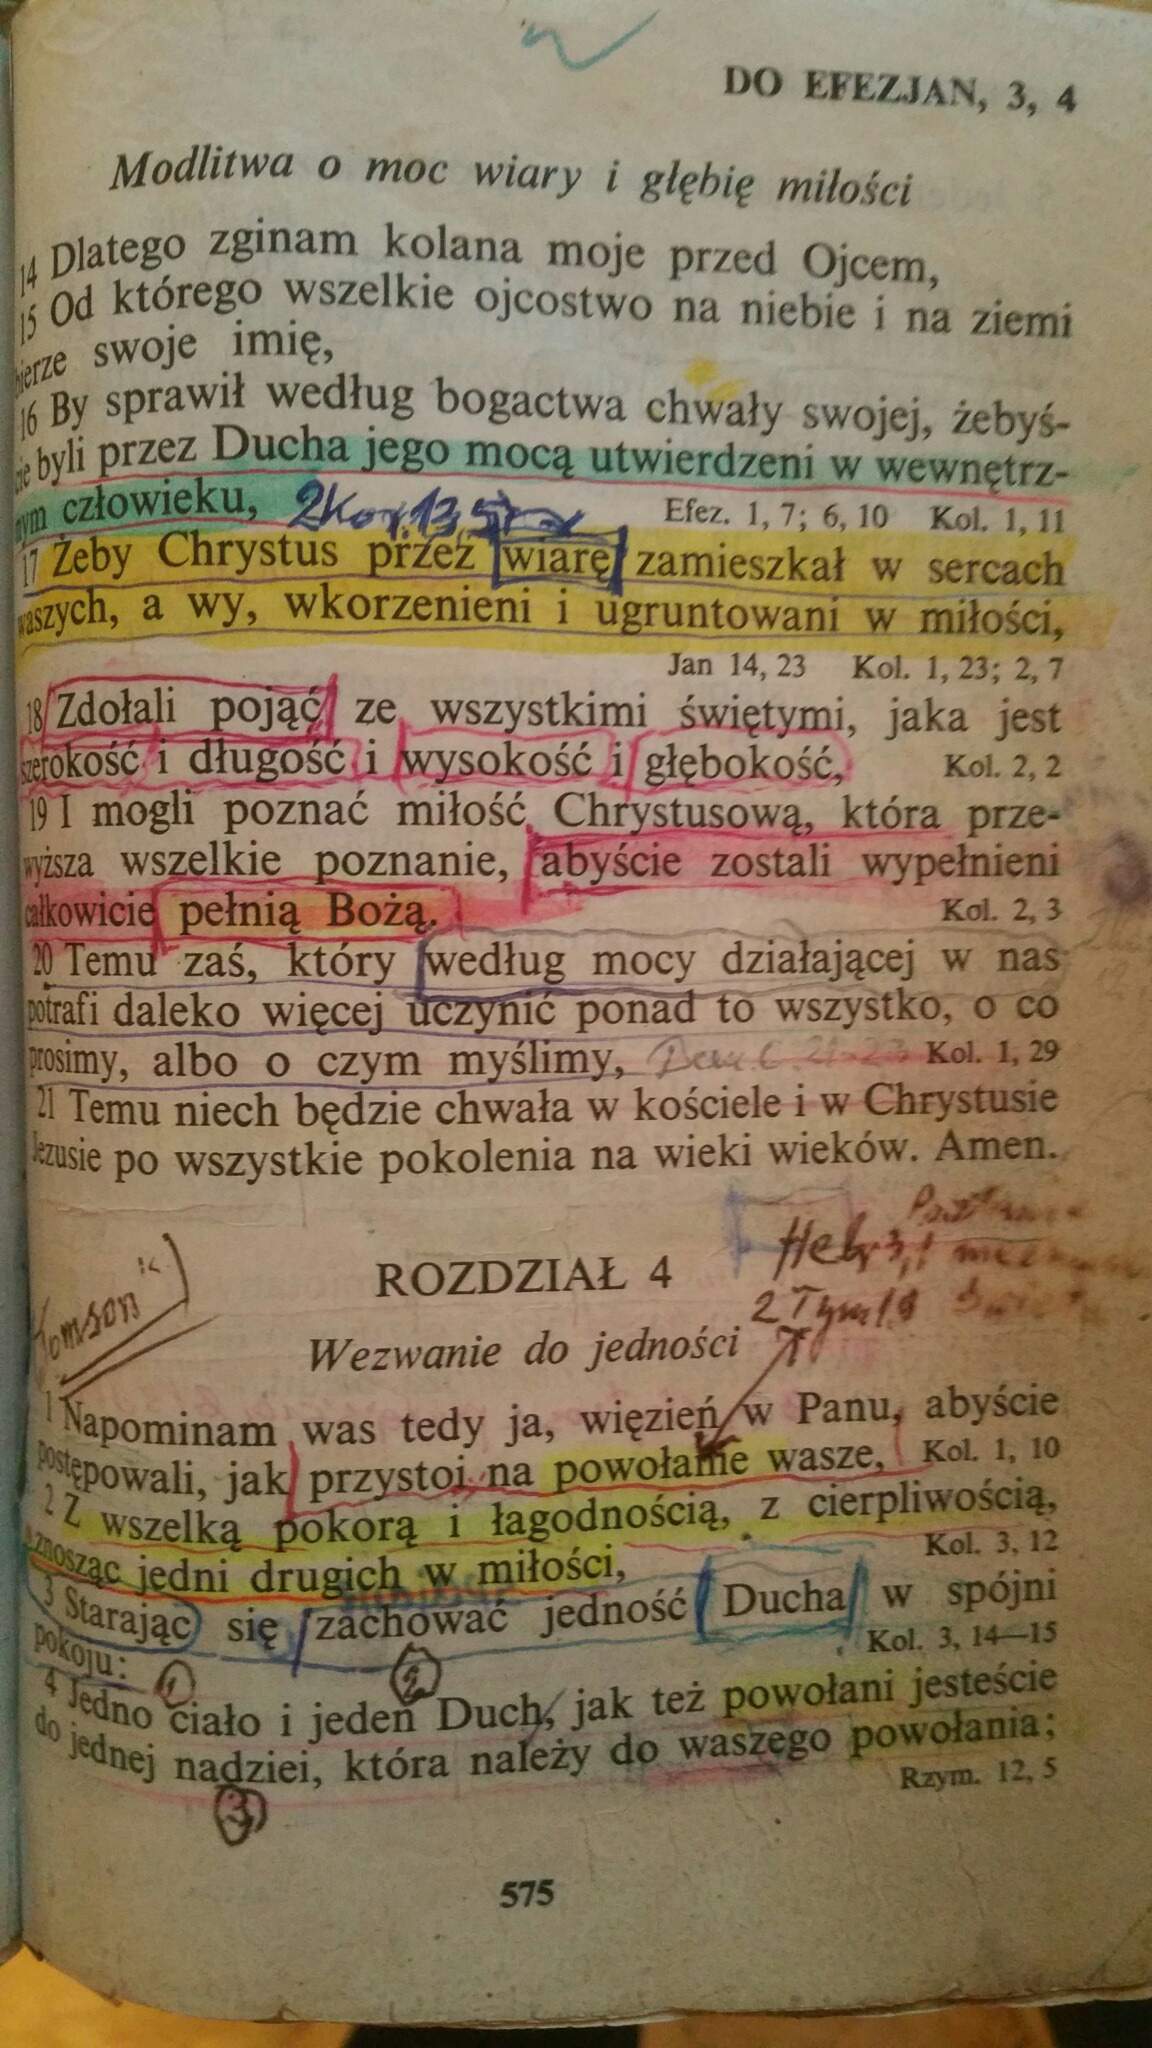 DO EFEZJAN, 3, 4
Modlitwa o moc wiary i głębię miłości
14 Dlatego zginam kolana moje przed Ojcem,
15 Od którego wszelkie ojcostwo na niebie i na ziemi
bierze swoje imię,
16 By sprawił według bogactwa chwały swojej, żebyś-
cie byli przez Ducha jego mocą utwierdzeni w wewnętrz-
nym człowieku, 2Kor. 13,5 Efez. 1, 7; 6, 10 Kol. 1, 11
17 Żeby Chrystus przez wiarę zamieszkał w sercach
waszych, a wy, wkorzenieni i ugruntowani w miłości,
Jan 14, 23 Kol. 1, 23; 2, 7
18 Zdołali pojąć ze wszystkimi świętymi, jaka jest
szerokość i długość i wysokość i głębokość, Kol. 2, 2
19 I mogli poznać miłość Chrystusową, która prze-
wyższa wszelkie poznanie, abyście zostali wypełnieni
całkowicie pełnią Bożą. Kol. 2, 3
20 Temu zaś, który według mocy działającej w nas
potrafi daleko więcej uczynić ponad to wszystko, o co
prosimy, albo o czym myślimy, Kol. 1, 29
21 Temu niech będzie chwała w kościele i w Chrystusie
Jezusie po wszystkie pokolenia na wieki wieków. Amen.
Hebr 3,1
ROZDZIAŁ 4
2 Tym 1,9
Tomson
Wezwanie do jedności
1 Napominam was tedy ja, więzień w Panu, abyście
postępowali, jak przystoi na powołanie wasze, Kol. 1, 10
2 Z wszelką pokorą i łagodnością, z cierpliwością,
znosząc jedni drugich w miłości, Kol. 3, 12
3 Starając się zachować jedność Ducha w spójni
pokoju: 1 2 Kol. 3, 14—15
4 Jedno ciało i jeden Duch, jak też powołani jesteście
do jednej nadziei, która należy do waszego powołania;
3 Rzym. 12, 5
575